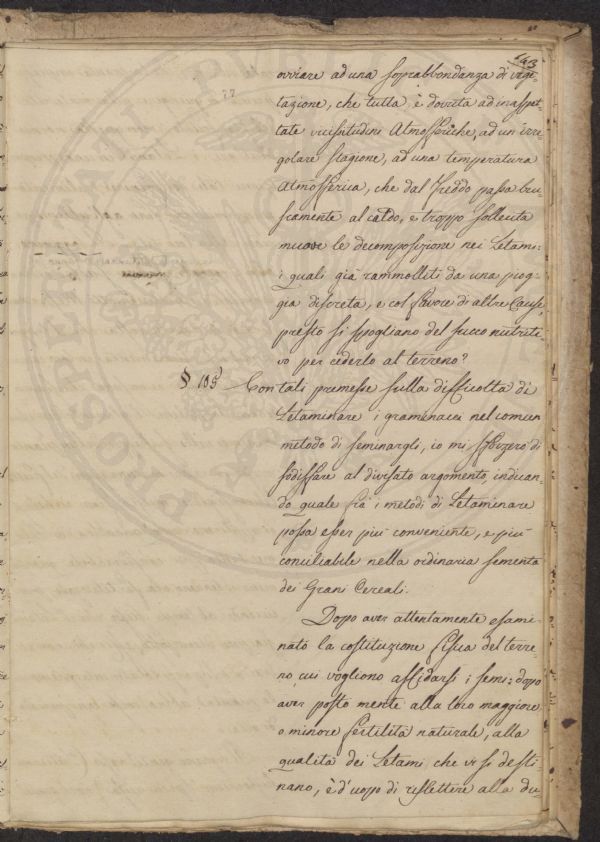 143
77
ovviare ad una soprabbondanza di vege-
tazione, che tutta è dovuta ad inaspet-
tate vicissitudini Atmosferiche, ad un'irre-
golare stagione, ad una temperatura
Atmosferica, che dal freddo passa bru-
scamente al caldo, e troppo sollecita
muove le decomposizione nei Letami:
i quali già rammolliti da una piog-
gia discreta, e col favore di altre Cause,
presto si spogliano del succo nutriti-
vo per cederlo al terreno?
§ 105 Con tali premesse sulla difficoltà di
Letaminare i gramenacei nel comun
metodo di seminargli, io mi sforzerò di
sodisfare al divisato argomento, indican-
do quale fra i metodi di Letaminare
possa esser più conveniente, e più
conciliabile nella ordinaria sementa
dei Grani Cereali.
Dopo aver attentamente esami-
nato la costituzione fisica del terre-
no, cui vogliono affidarsi i semi: dopo
aver posto mente alla loro maggiore
o minore fertilità naturale, alla
qualità dei Letami che vi si desti-
nano, è d'uopo di riflettere alla du-